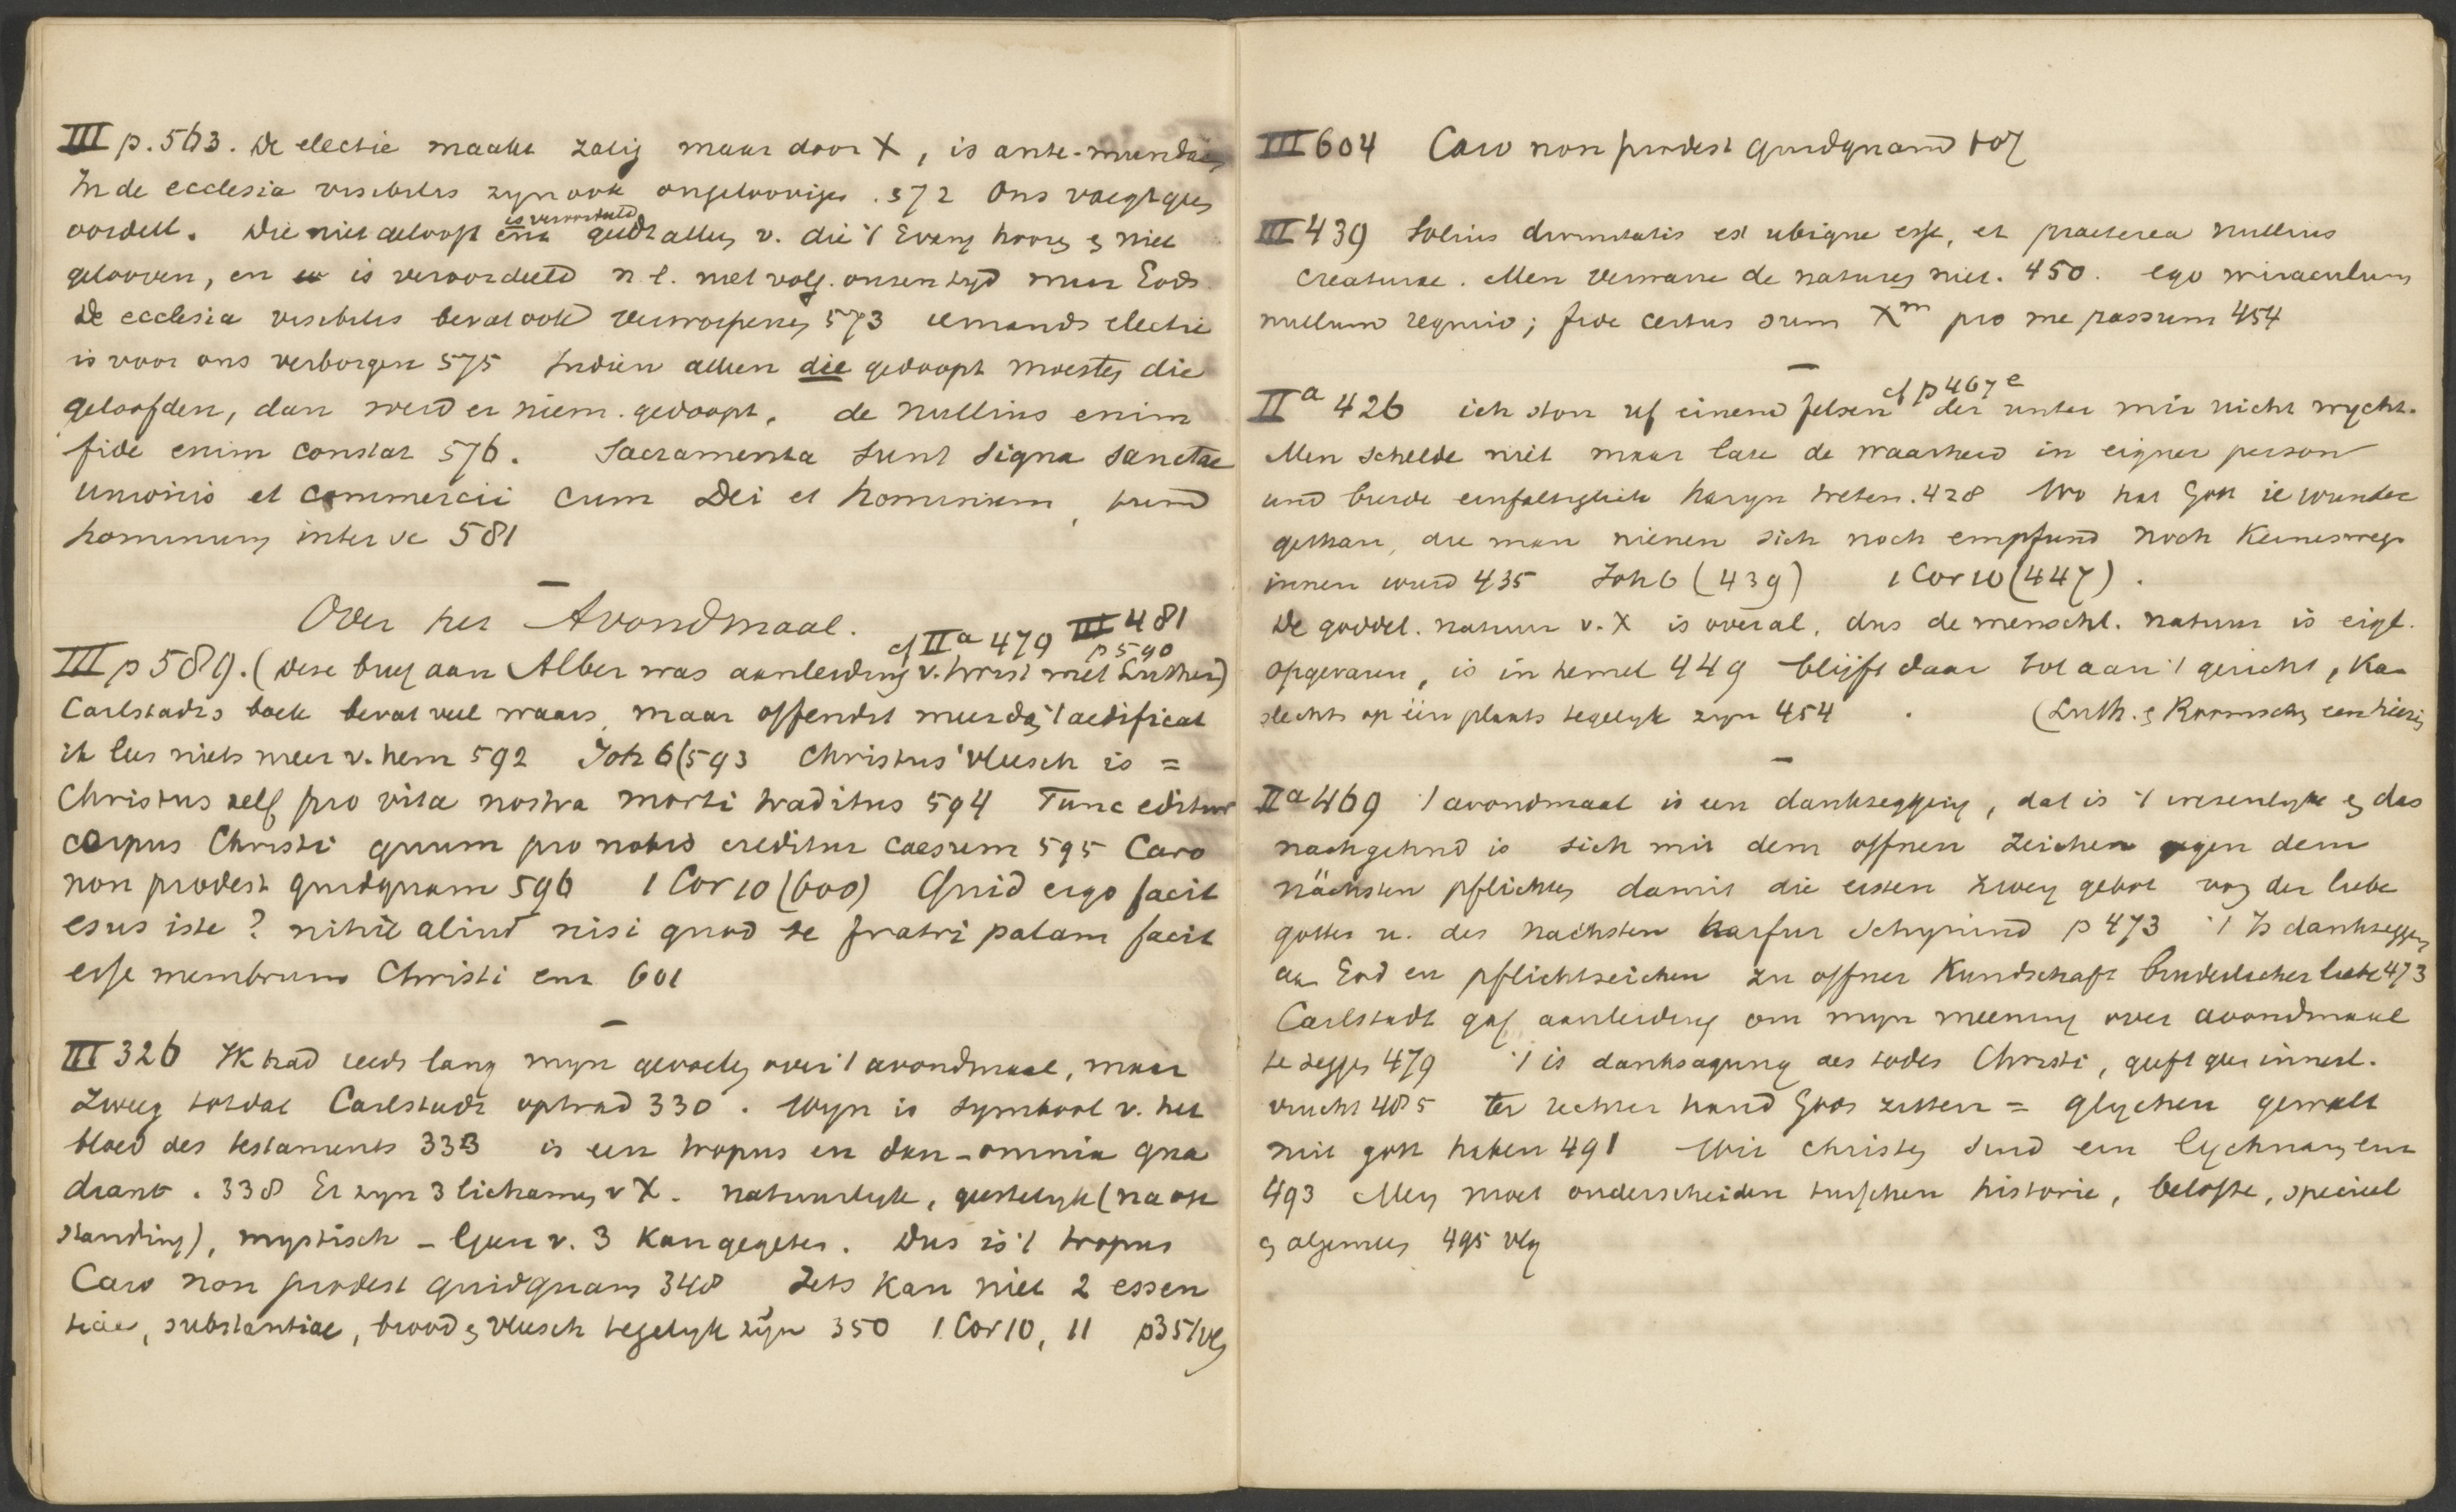 III p. 563. De electie maakt zalig maar door X, is ante-mundaan
In de ecclesia visibilis zyn ook ongeloovigen. 572 Ons voegt geen
oordeel. Die niet gelooft enz is veroordeeld geldt alleen v. die 't Evang hooren en niet
gelooven, en is veroordeeld n.l. met volg. onzen tyd maar Gods
De ecclesia visibilis bevat ook verworpenen 573 iemands electie
is voor ons verborgen 575 Indien alleen die gedoopt moesten die
geloofden, dan werd er niem. gedoopt, de nullius enim
fide enim constat 576. Sacramenta sunt signa sanctae
unionis et commercii cum Dei et hominum, tum
hominum inter se 581
Over het Avondmaal.
cf IIa 479 III 481
p 590
III p 589. (deze brief aan Alber was aanleiding v. twist met Luther)
Carlstadts boek bevat veel waars, maar offendit meer dan 't aedificat
ik lees niets meer v. hem 592 Joh 6 (593 Christus' vleesch is =
Christus zelf pro vita nostra morti traditus 594 Tunc editur
corpus Christi quum pro nobis creditur caesum 595 Caro
non prodest quidquam 596 1 Cor 10 (600) Quid ergo facit
esus iste? nihil aliud nisi quod te fratri palam facit
esse membrum Christi enz 601
III 326 Ik had reeds lang myn gevoelen over 't avondmaal, maar
zweeg totdat Carlstadt optrad 330. Wyn is symbool v. het
bloed des testaments 333 is een tropus en dan - omnia qua
drant. 338 Er zyn 3 lichamen v X. natuurlyk, geestelyk (na op
standing), mystisch - Geen v. 3 kan gegeten. Dus is 't tropus
Caro non prodest quidquam 348 Iets kan niet 2 essen
tiae, substantiae, brood en vleesch tegelyk zijn 350 1 Cor 10, 11 p 351 vlg
III 604 Caro non prodest quidquam 607
III 439 Solius divinitatis est ubique esse, et praeterea nullius
creaturae. Men verwarre de naturen niet. 450. ego miraculum
nullum requiro; fide certus sum Xm pro me passum 454
IIa 426 ich ston uf einem felsen cf p 467 e der unter mir nicht wycht.
Men schelde niet maar late de waarheid in eigner person
und einfaltiglich haryn treten. 428 Wo hat Gott ie wunder
gethan, die man nienen sich noch empfund noch keineswegs
innen wurd 435 Joh 6 (439) 1 Cor 10 (447).
De goddel. natuur v. X is overal, dus de menschl. natuur is eigl.
opgevaren, is in hemel 449 blijft daar tot aan 't gericht, ka-
slechts op één plaats tegelyk zyn 454. (Luth. en Roomschen
IIa 469 't avondmaal is een dankzegging, dat is 't wezenlyke en das
nachgehnd is sich mit dem offnen zeichen gegen dem
nächsten pflichten damit die ersten zwey gebot von der liebe
gottes u. des nächsten harfur schynind p 473 't Is dankzeggen
aan God en pflichtzeichen zu offner Kundschaft bruderlicher liebe 473
Carlstadt gaf aanleiding om myn meening over avondmaal
te zeggen 479 't is danksagung des todes Christi, geeft geen innerl.
vrucht 485 ter rechter hand Gods zitten = glychen gewalt
mit gott haben 491 Wir christen sind ein lychnam enz
493 Men moet onderscheiden tusschen historie, belofte, specieel
en algemeen 495 vlg